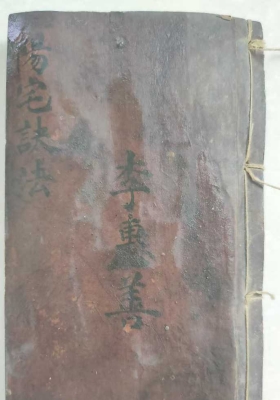 陽宅訣法
李惠